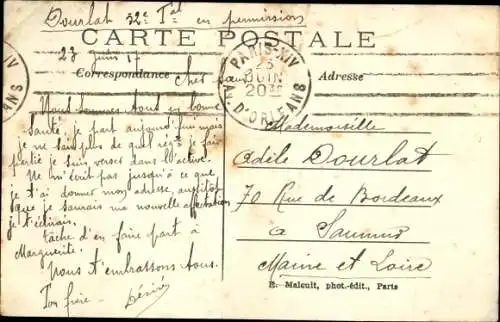 Dourlat 32e Tal en permission
CARTE POSTALE
23 juin 17
Correspondance
Adresse
PARIS-XIV
23
JUIN
2030
AV. D'ORLEANS
Cher
Nous sommes tout en bonne
santé je part aujourd'hui mais
je ne sais plus de quel régt je fais
partie je suis verser dans l'active.
Ne m'écrit pas jusqu'à ce que
je t'ai donner mon adresse, aussitôt
que je saurais ma nouvelle affectation
je t'écrirais.
tâche d'en faire part à
Marguerite.
Nous t'embrassons tous.
Ton frère - Désiré
Mademoiselle
Adèle Dourlat
70 Rue de Bordeaux
a Saumur
Maine et Loire
E. Malcuit, phot.-édit., Paris